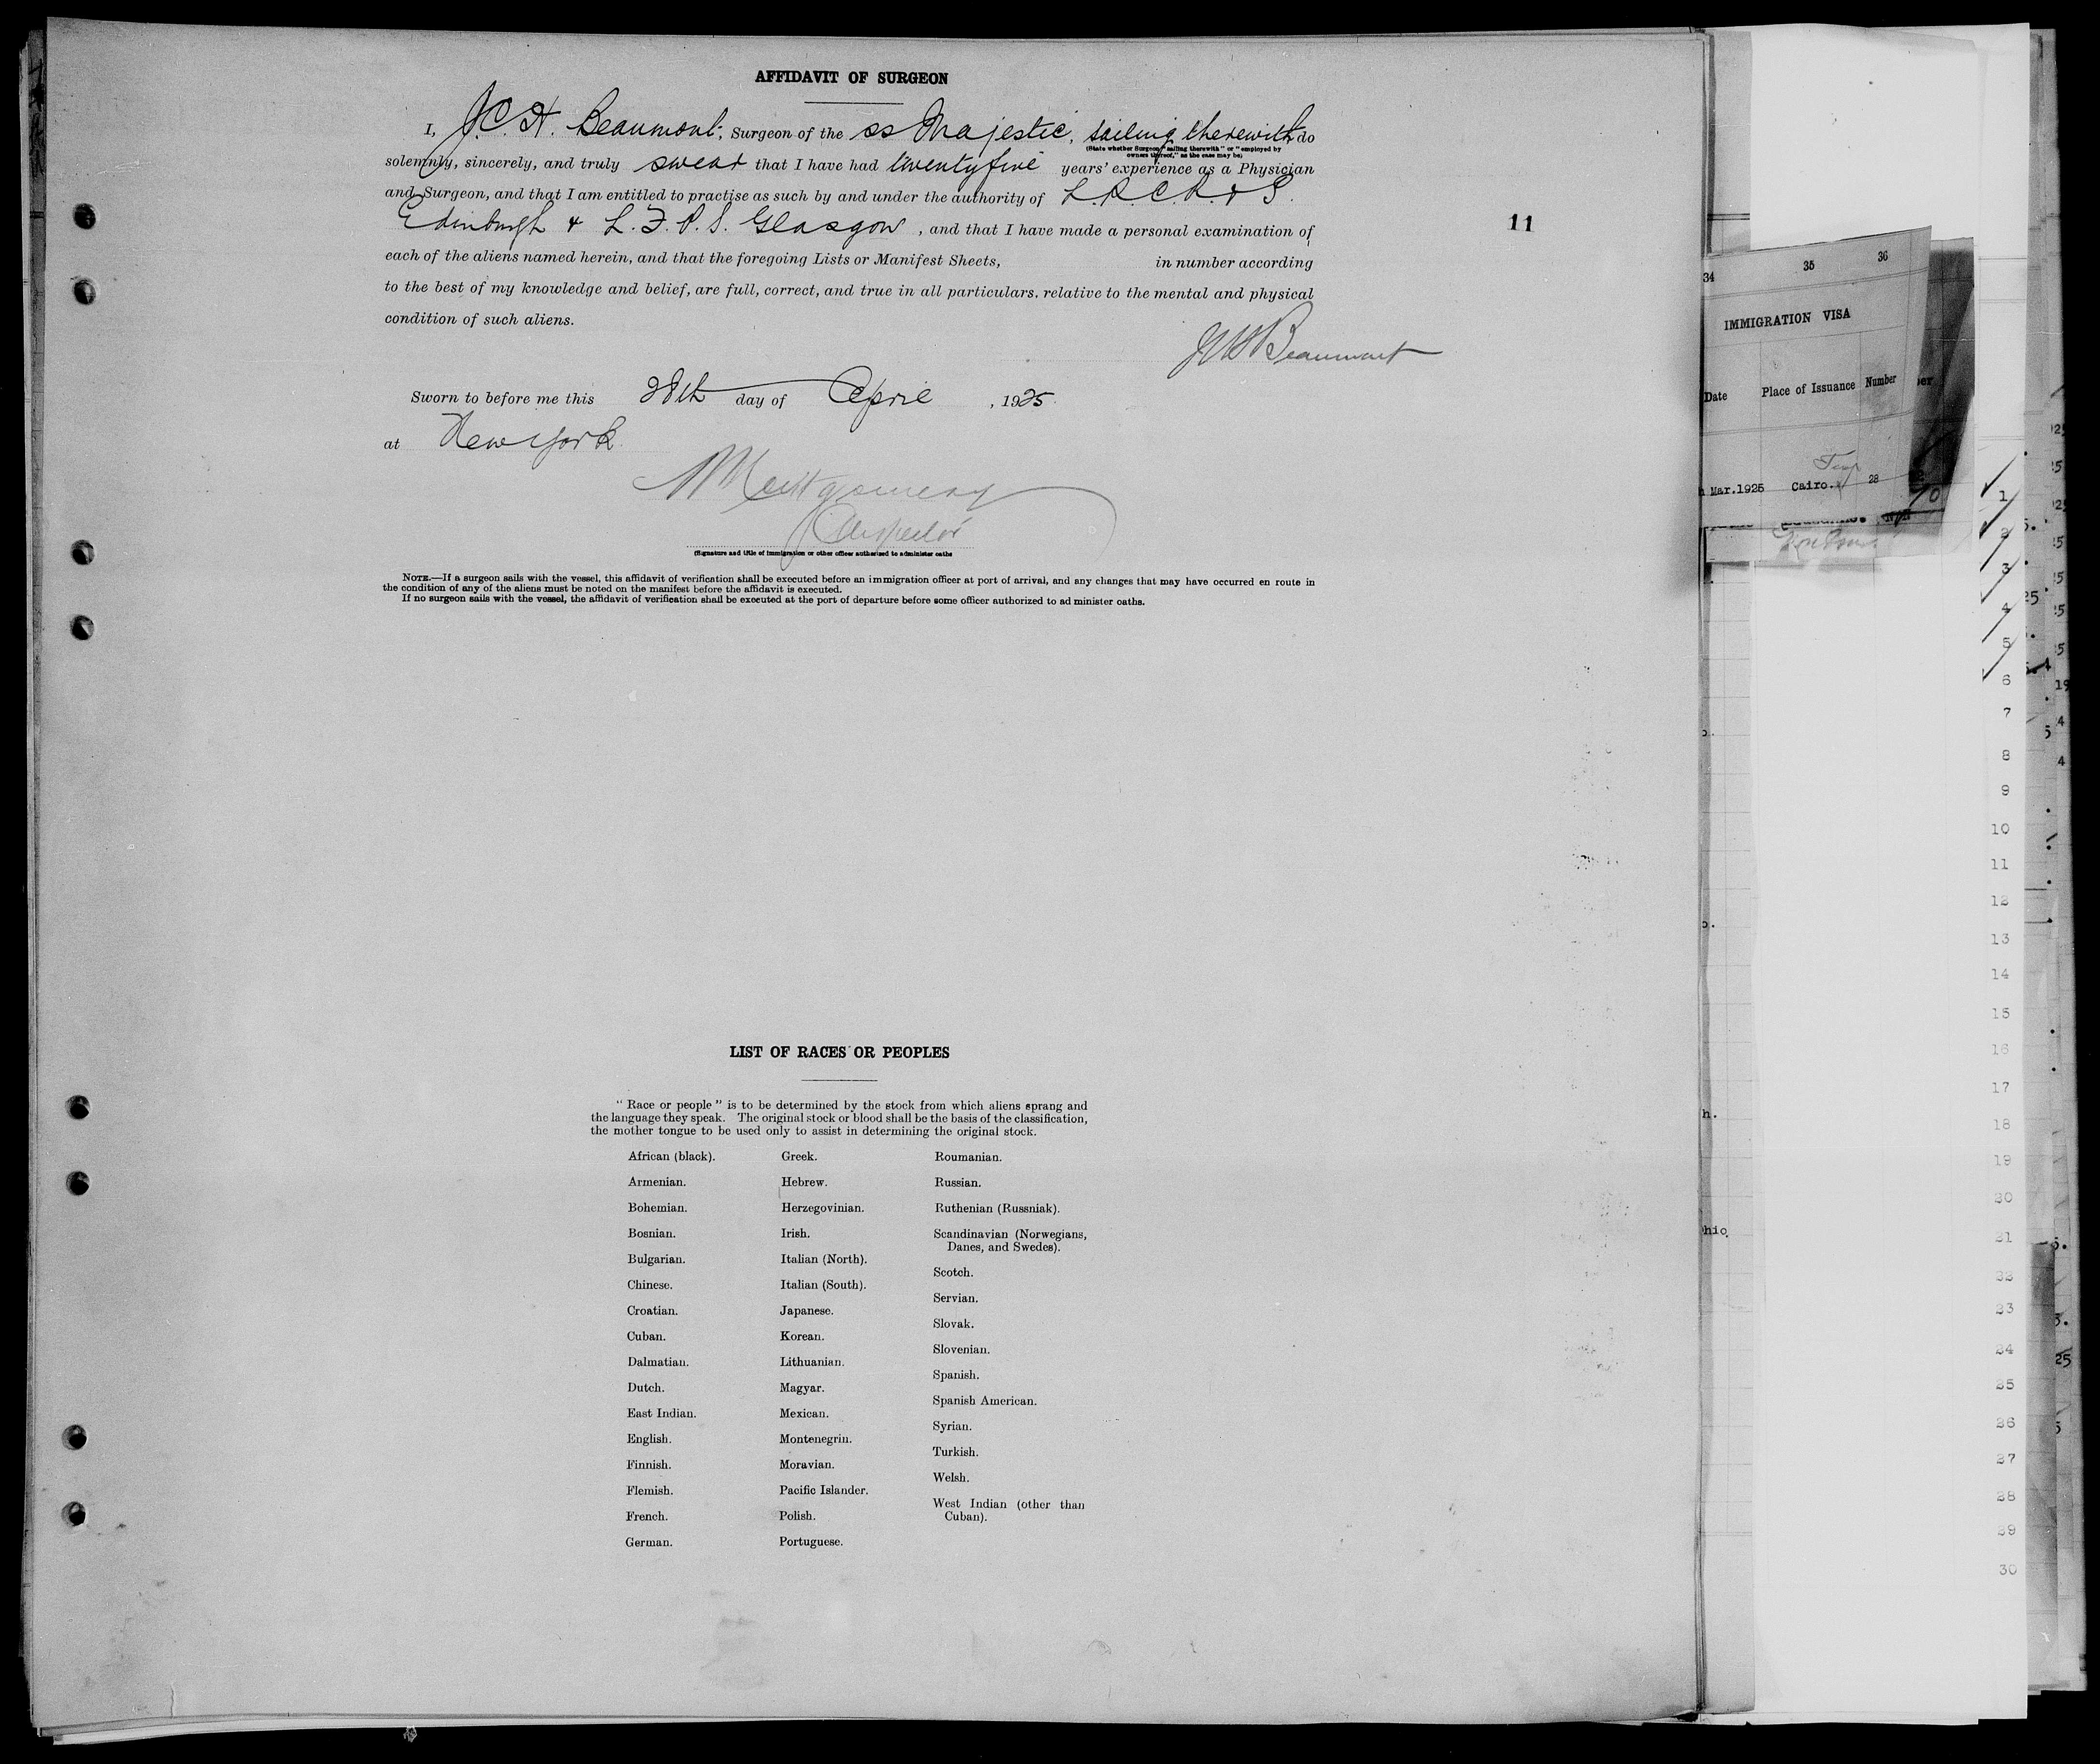 AFFIDAVIT OF SURGEON
I, J.C.H. Beaumont, Surgeon of the ss Majestic, sailing therewith do
(State whether Surgeon "sailing therewith" or "employed by
owners thereof," as the case may be)
solemnly, sincerely, and truly swear that I have had twenty five years' experience as a Physician
and Surgeon, and that I am entitled to practise as such by and under the authority of L.R.C.P. & S.
Edinburgh & L.F.P.S. Glasgow, and that I have made a personal examination of
each of the aliens named herein, and that the foregoing Lists or Manifest Sheets, in number according
to the best of my knowledge and belief, are full, correct, and true in all particulars. relative to the mental and physical
condition of such aliens.
JCHBeaumont
Sworn to before me this 28th day of April, 1925.
at New York
Montgomery
Inspector
(Signature and title of immigration or other officer authorized to administer oaths
NOTE.—If a surgeon sails with the vessel, this affidavit of verification shall be executed before an immigration officer at port of arrival, and any changes that may have occurred en route in
the condition of any of the aliens must be noted on the manifest before the affidavit is executed.
If no surgeon sails with the vessel, the affidavit of verification shall be executed at the port of departure before some officer authorized to ad minister oaths.
11
LIST OF RACES OR PEOPLES
"Race or people" is to be determined by the stock from which aliens sprang and
the language they speak. The original stock or blood shall be the basis of the classification,
the mother tongue to be used only to assist in determining the original stock.
African (black).
Armenian.
Bohemian.
Bosnian.
Bulgarian.
Chinese.
Croatian.
Cuban.
Dalmatian.
Dutch.
East Indian.
English.
Finnish.
Flemish.
French.
German.
Greek.
Hebrew.
Herzegovinian.
Irish.
Italian (North).
Italian (South).
Japanese.
Korean.
Lithuanian.
Magyar.
Mexican.
Montenegrin.
Moravian.
Pacific Islander.
Polish.
Portuguese.
Roumanian.
Russian.
Ruthenian (Russniak).
Scandinavian (Norwegians,
Danes, and Swedes).
Scotch.
Servian.
Slovak.
Slovenian.
Spanish.
Spanish American.
Syrian.
Turkish.
Welsh.
West Indian (other than
Cuban).
34 35 36
IMMIGRATION VISA
Date Place of Issuance Number
Mar.1925 Cairo. 28
1
2
3
4
5
6
7
8
9
10
11
12
13
14
15
16
17
18
19
20
21
22
23
24
25
26
27
28
29
30